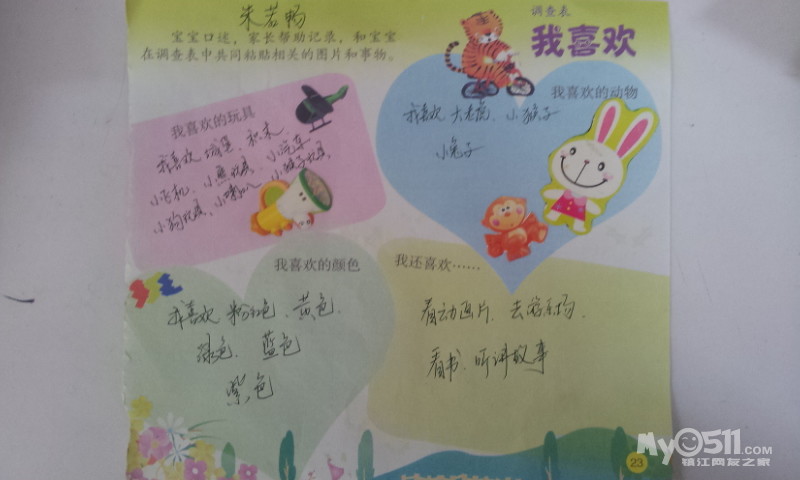 朱若畅
宝宝口述，家长帮助记录，和宝宝
在调查表中共同粘贴相关的图片和事物。
调查表
我喜欢
我喜欢的玩具
我喜欢 城堡、积木、
小飞机、小鱼玩具、小汽车
小狗玩具、小喇叭、小猴子玩具
我喜欢的动物
我喜欢 大老虎、小猴子
小兔子
我喜欢的颜色
我喜欢 粉红色、黄色、
绿色、蓝色
紫色
我还喜欢……
看动画片、去游乐场、
看书、听讲故事
23
My0511.COM
镇江网友之家